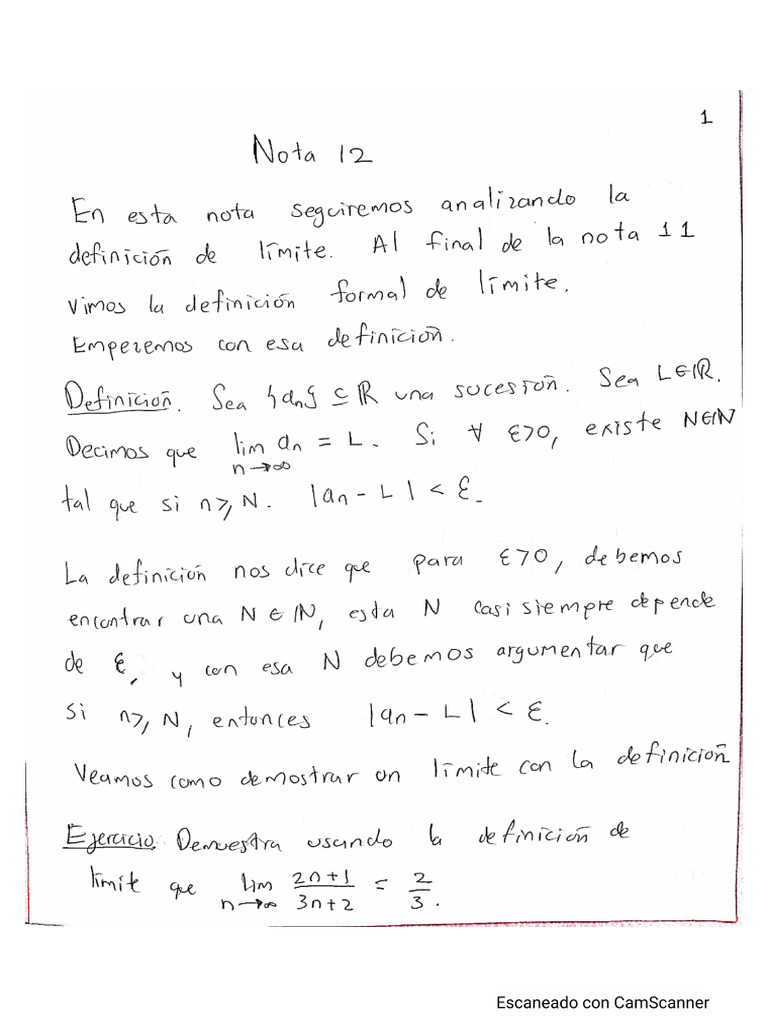 1
Nota 12
En esta nota seguiremos analizando la
definición de límite. Al final de la nota 11
vimos la definición formal de límite.
Empezemos con esa definición.
Definición. Sea {an} ⊆ ℝ una sucesión. Sea L∈ℝ.
Decimos que lim n→∞ an = L. Si ∀ ε>0, existe N∈ℕ
tal que si n≥N. |an - L| < ε.
La definición nos dice que para ε>0, debemos
encontrar una N∈ℕ, esta N casi siempre depende
de ε, y con esa N debemos argumentar que
si n≥N, entonces |an - L| < ε.
Veamos como demostrar un límite con la definición
Ejercicio. Demuestra usando la definición de
límite que lim n→∞ (2n+1)/(3n+2) = 2/3.
Escaneado con CamScanner